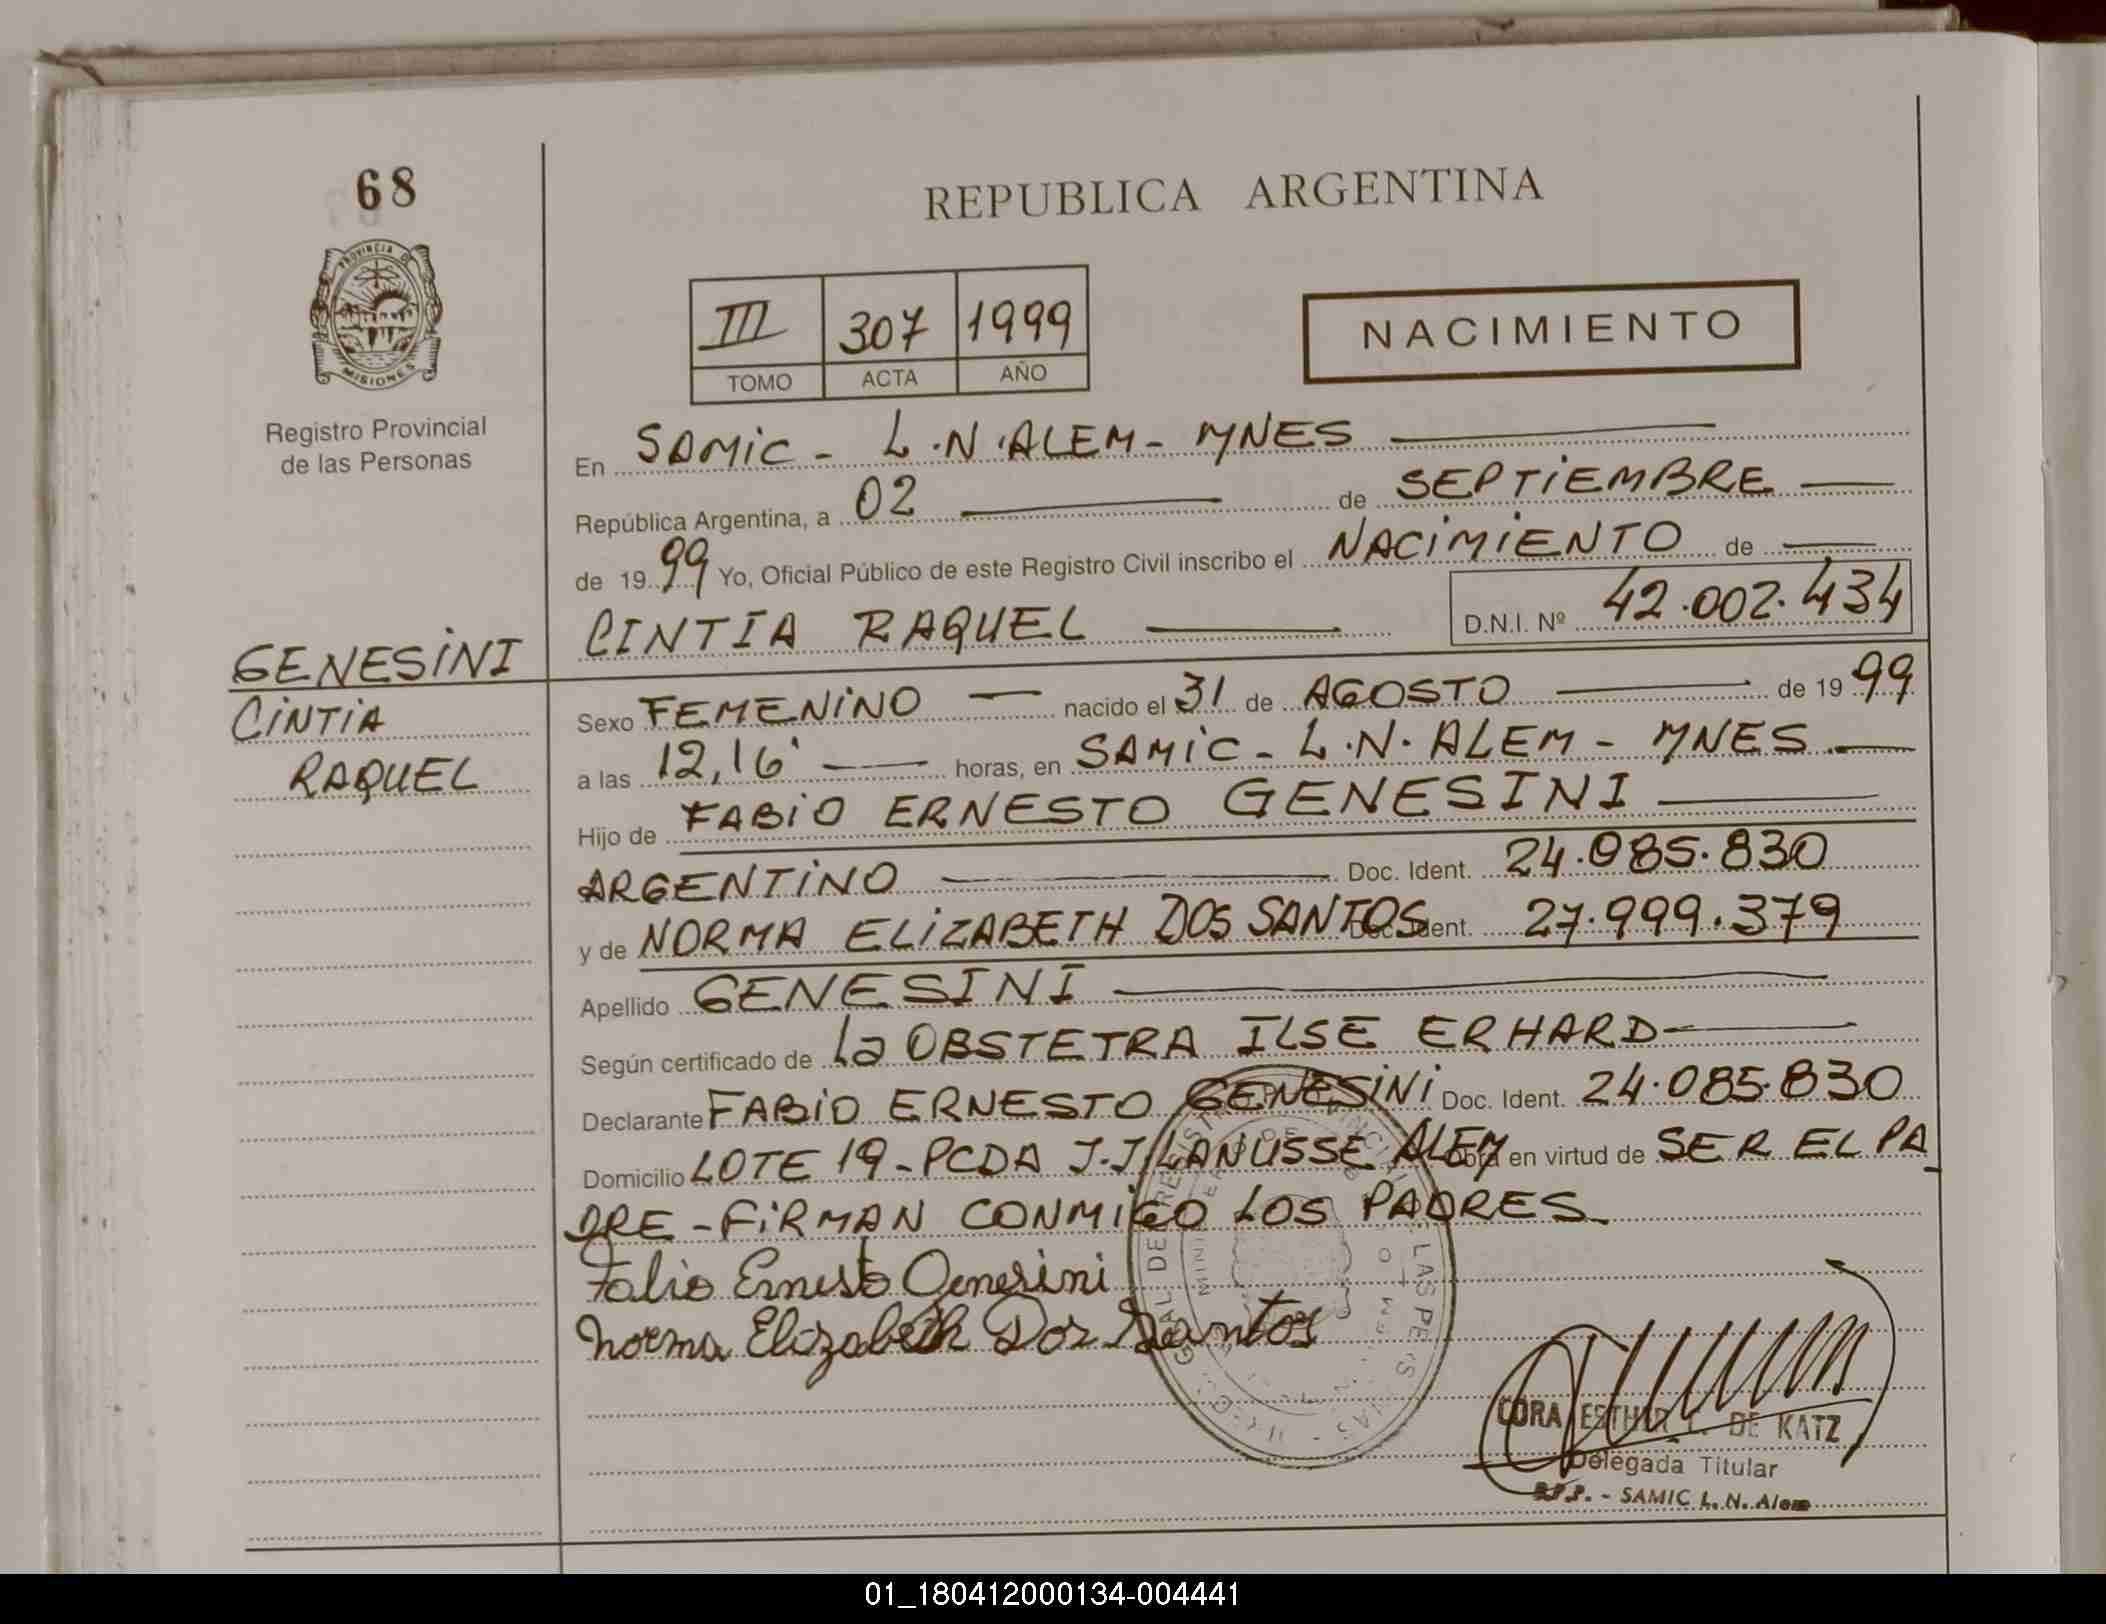 68
PROVINCIA DE
MISIONES
Registro Provincial
de las Personas
GENESINI
CINTIA
RAQUEL
REPUBLICA ARGENTINA
III 307 1999
TOMO ACTA AÑO
NACIMIENTO
En SAMIC - L.N.ALEM - MNES
República Argentina, a 02 de SEPTIEMBRE
de 1999 Yo, Oficial Público de este Registro Civil inscribo el NACIMIENTO de
CINTIA RAQUEL D.N.I. Nº 42.002.434
Sexo FEMENINO nacido el 31 de AGOSTO de 1999
a las 12,16' horas, en SAMIC - L.N. ALEM - MNES
Hijo de FABIO ERNESTO GENESINI
ARGENTINO Doc. Ident. 24.085.830
y de NORMA ELIZABETH DOS SANTOS Doc. Ident. 27.999.379
Apellido GENESINI
Según certificado de La OBSTETRA ILSE ERHARD
Declarante FABIO ERNESTO GENESINI Doc. Ident. 24.085.830
Domicilio LOTE 19 - PCDA J.J. LANUSSE ALEM obra en virtud de SER EL PA_
DRE - FIRMAN CONMIGO LOS PADRES.
Fabio Ernesto Genesini
Norma Elizabeth Dos Santos
CORA ESTHER DE KATZ
Delegada Titular
- SAMIC L. N. Alem
01_180412000134-004441